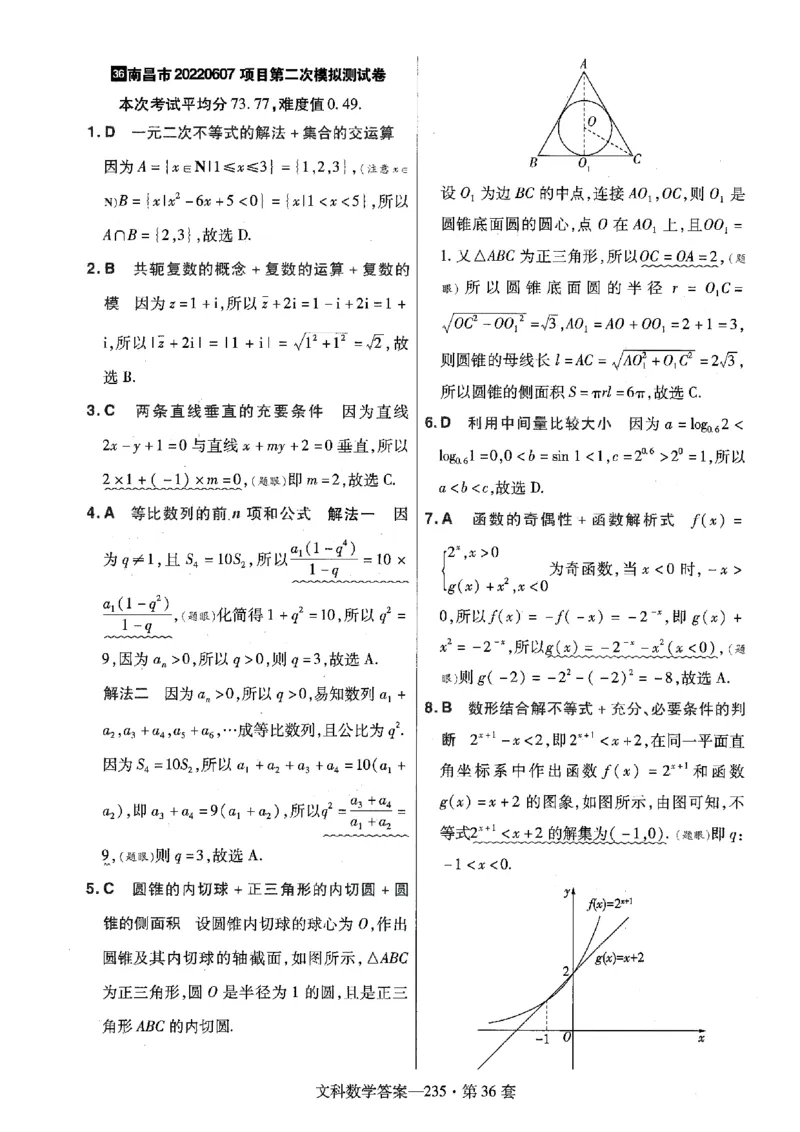 36南昌市20220607项目第二次模拟测试卷
本次考试平均分73.77,难度值0.49.
1.D 一元二次不等式的解法+集合的交运算
因为A={x∈N|1≤x≤3}={1,2,3},(注意x∈
N)B={x|x²-6x+5<0}={x|1<x<5},所以
A∩B={2,3},故选D.
2.B 共轭复数的概念+复数的运算+复数的
模 因为z=1+i,所以z̄+2i=1-i+2i=1+
i,所以|z̄+2i|=|1+i|=√(1²+1²)=√2,故
选B.
3.C 两条直线垂直的充要条件 因为直线
2x-y+1=0与直线x+my+2=0垂直,所以
2×1+(-1)×m=0,(题眼)即m=2,故选C.
4.A 等比数列的前n项和公式 解法一 因
为q≠1,且S₄=10S₂,所以a₁(1-q⁴)/(1-q)=10×
a₁(1-q²)/(1-q),(题眼)化简得1+q²=10,所以q²=
9,因为aₙ>0,所以q>0,则q=3,故选A.
解法二 因为aₙ>0,所以q>0,易知数列a₁+
a₂,a₃+a₄,a₅+a₆,…成等比数列,且公比为q².
因为S₄=10S₂,所以a₁+a₂+a₃+a₄=10(a₁+
a₂),即a₃+a₄=9(a₁+a₂),所以q²=(a₃+a₄)/(a₁+a₂)=
9,(题眼)则q=3,故选A.
5.C 圆锥的内切球+正三角形的内切圆+圆
锥的侧面积 设圆锥内切球的球心为O,作出
圆锥及其内切球的轴截面,如图所示,△ABC
为正三角形,圆O是半径为1的圆,且是正三
角形ABC的内切圆.
A
O
B O₁ C
设O₁为边BC的中点,连接AO₁,OC,则O₁是
圆锥底面圆的圆心,点O在AO₁上,且OO₁=
1.又△ABC为正三角形,所以OC=OA=2,(题
眼)所以圆锥底面圆的半径r=O₁C=
√(OC²-OO₁²)=√3,AO₁=AO+OO₁=2+1=3,
则圆锥的母线长l=AC=√(AO₁²+O₁C²)=2√3,
所以圆锥的侧面积S=πrl=6π,故选C.
6.D 利用中间量比较大小 因为a=log₀.₆2<
log₀.₆1=0,0<b=sin 1<1,c=2^0.6>2⁰=1,所以
a<b<c,故选D.
7.A 函数的奇偶性+函数解析式 f(x)=
{2ˣ,x>0
g(x)+x²,x<0 为奇函数,当x<0时,-x>
0,所以f(x)=-f(-x)=-2⁻ˣ,即g(x)+
x²=-2⁻ˣ,所以g(x)=-2⁻ˣ-x²(x<0),(题
眼)则g(-2)=-2²-(-2)²=-8,故选A.
8.B 数形结合解不等式+充分、必要条件的判
断 2ˣ⁺¹-x<2,即2ˣ⁺¹<x+2,在同一平面直
角坐标系中作出函数f(x)=2ˣ⁺¹和函数
g(x)=x+2的图象,如图所示,由图可知,不
等式2ˣ⁺¹<x+2的解集为(-1,0).(题眼)即q:
-1<x<0.
y
f(x)=2ˣ⁺¹
g(x)=x+2
2
-1 O x
文科数学答案—235·第36套